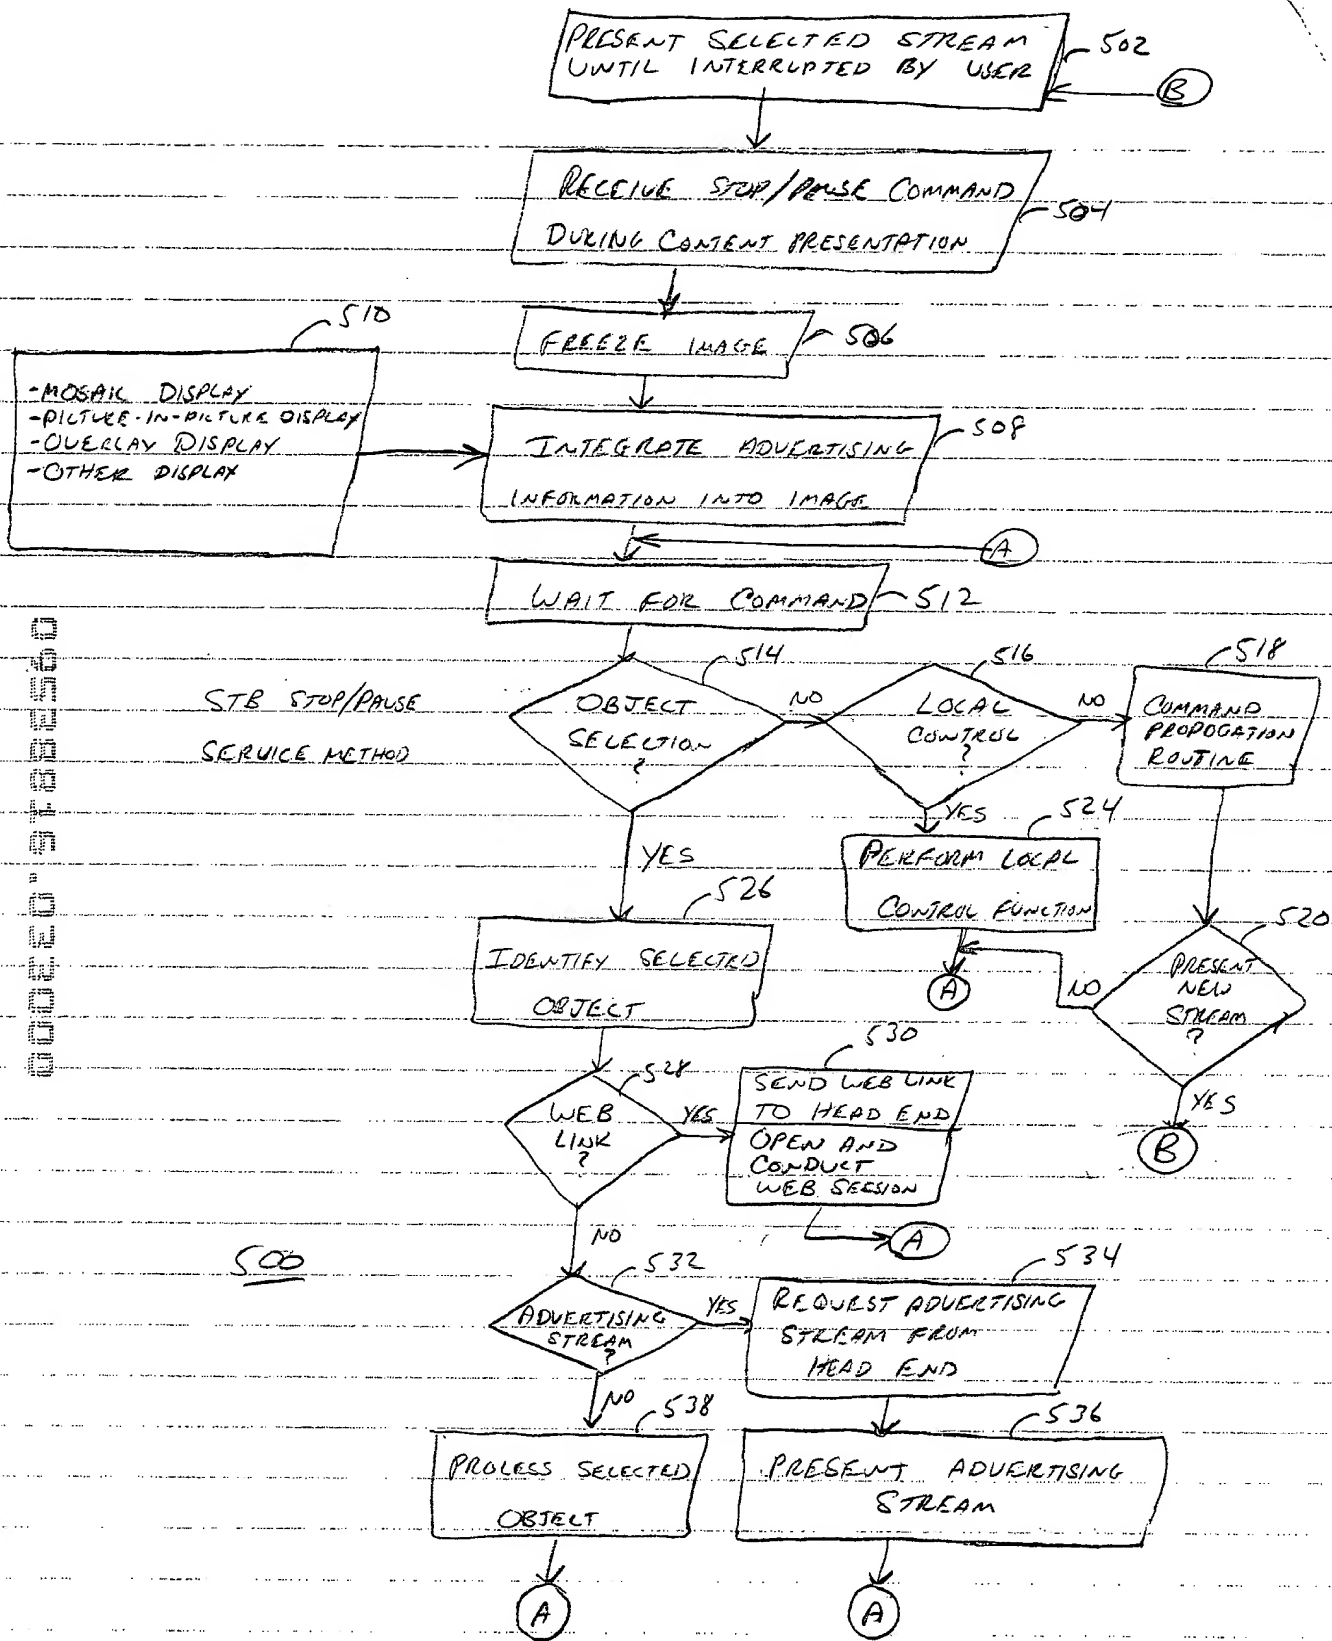 PRESENT SELECTED STREAM
UNTIL INTERRUPTED BY USER
502
B
RECEIVE STOP/PAUSE COMMAND
DURING CONTENT PRESENTATION
504
FREEZE IMAGE
506
510
-MOSAIC DISPLAY
-PICTURE-IN-PICTURE DISPLAY
-OVERLAY DISPLAY
-OTHER DISPLAY
INTEGRATE ADVERTISING
INFORMATION INTO IMAGE
508
A
WAIT FOR COMMAND
512
STB STOP/PAUSE
SERVICE METHOD
514
OBJECT
SELECTION
?
NO
516
LOCAL
CONTROL
?
NO
518
COMMAND
PROPOGATION
ROUTINE
YES
YES
524
PERFORM LOCAL
CONTROL FUNCTION
A
520
PRESENT
NEW
STREAM
?
NO
YES
B
526
IDENTIFY SELECTED
OBJECT
528
WEB
LINK
?
YES
530
SEND WEB LINK
TO HEAD END
OPEN AND
CONDUCT
WEB SESSION
A
NO
500
532
ADVERTISING
STREAM
?
YES
534
REQUEST ADVERTISING
STREAM FROM
HEAD END
NO
538
PROCESS SELECTED
OBJECT
A
536
PRESENT ADVERTISING
STREAM
A